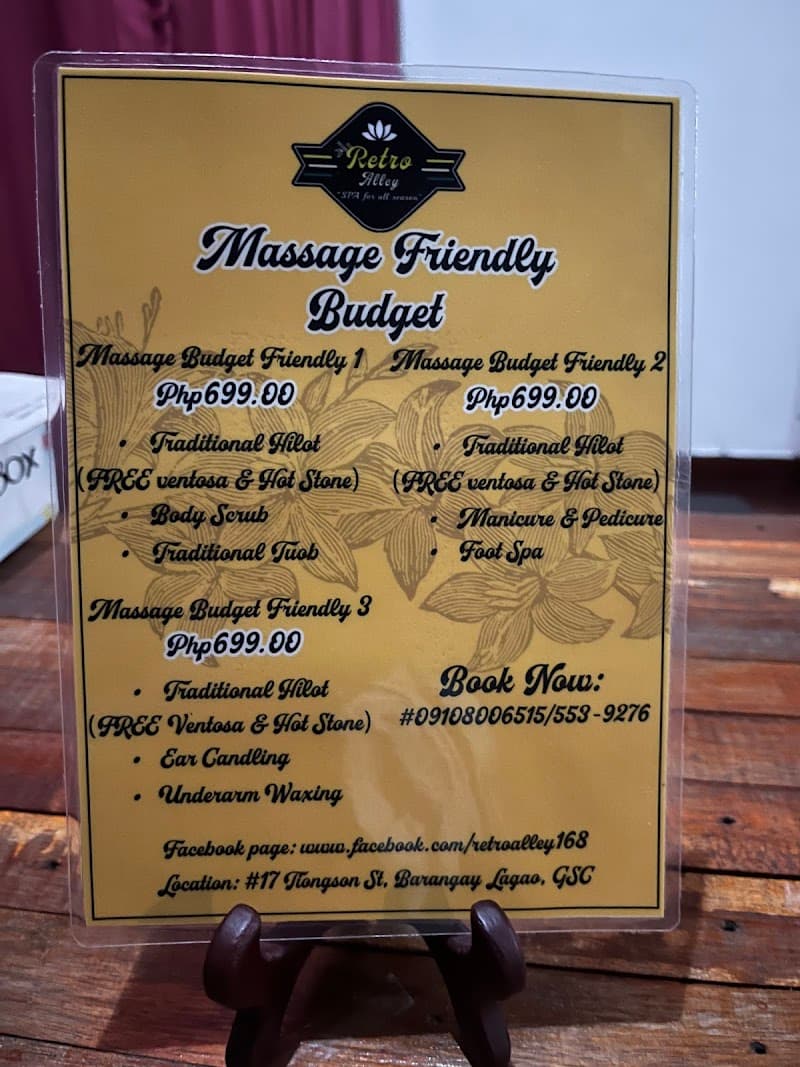 Retro
Alley
"SPA for all season"
Massage Friendly
Budget
Massage Budget Friendly 1
Php699.00
• Traditional Hilot
(FREE ventosa & Hot Stone)
• Body Scrub
• Traditional Tuob
Massage Budget Friendly 2
Php699.00
• Traditional Hilot
(FREE ventosa & Hot Stone)
• Manicure & Pedicure
• Foot Spa
Massage Budget Friendly 3
Php699.00
• Traditional Hilot
(FREE Ventosa & Hot Stone)
• Ear Candling
• Underarm Waxing
Book Now:
#09108006515/553-9276
Facebook page: www.facebook.com/retroalley168
Location: #17 Tiongson St, Barangay Lagao, GSC
BOX